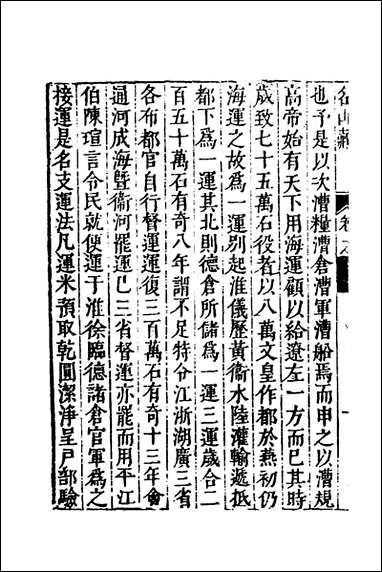 名山藏 卷之
也予是以次漕糧漕倉漕軍漕船焉而申之以漕規
高帝始有天下用海運顧以給遼左一方而已其時
歲致七十五萬石役者以八萬文皇作都於燕初仍
海運之故爲一運别起淮儀歷黃衞水陸灌輸遞抵
都下爲一運其北則德倉所儲爲一運三運歲合二
百五十萬石有奇八年謂不足特分江浙湖廣三省
各布都官自行督運運復三百萬石有奇十三年會
通河成海曁衞河罷運已三省督運亦罷而用平江
伯陳瑄言令民就便運于淮徐臨德諸倉官軍爲之
接運是名支運法凡運米預取乾圓潔淨呈戸部驗